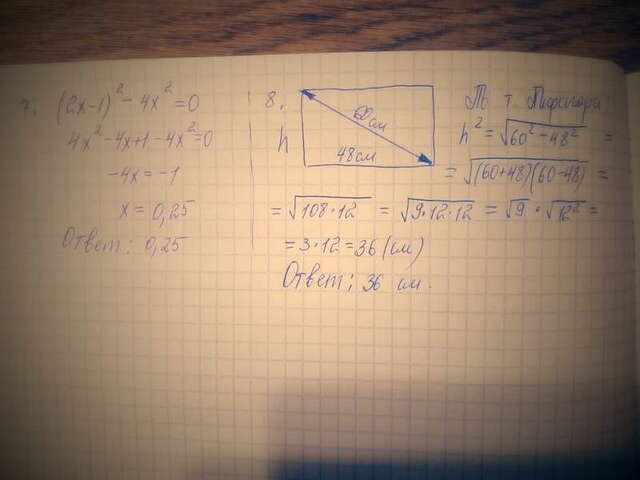 7. (2x-1)² - 4x² = 0
4x² - 4x + 1 - 4x² = 0
-4x = -1
x = 0,25
Ответ: 0,25
8.
60 см
h
48 см
т. Пифагора:
h² = √60² - 48² =
= √(60+48)(60-48) =
= √108·12 = √9·12·12 = √9 · √12² =
= 3·12 = 36 (см)
Ответ: 36 см.